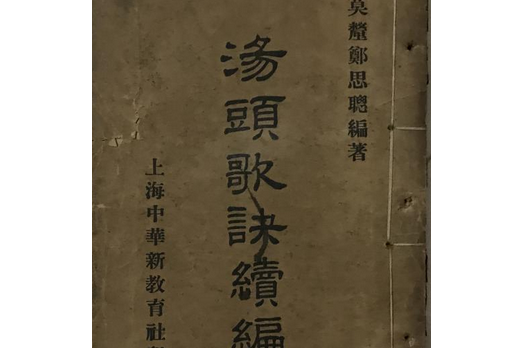 吳釐鄭思聰編著
湯頭歌訣續編
上海中華新教育社